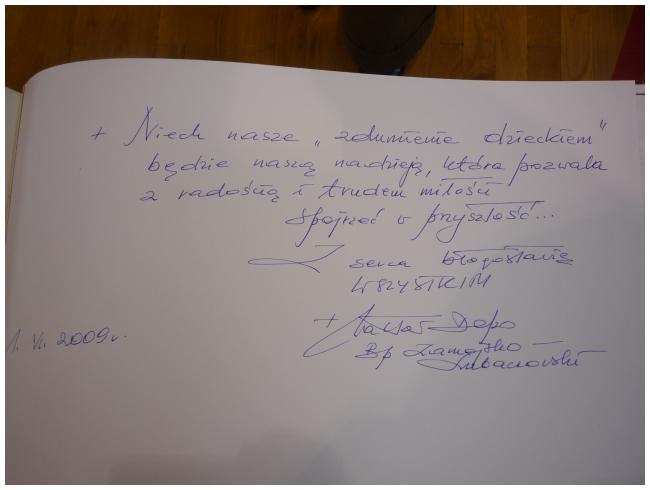 + Niech nasze „zdumienie dzieckiem"
będzie naszą nadzieją, która pozwala
z radością i trudem miłości
spojrzeć w przyszłość...
Z serca błogosławię
WSZYSTKIM
+ Wacław Depo
Bp Zamojsko
Lubaczowski
1. VI. 2009 r.